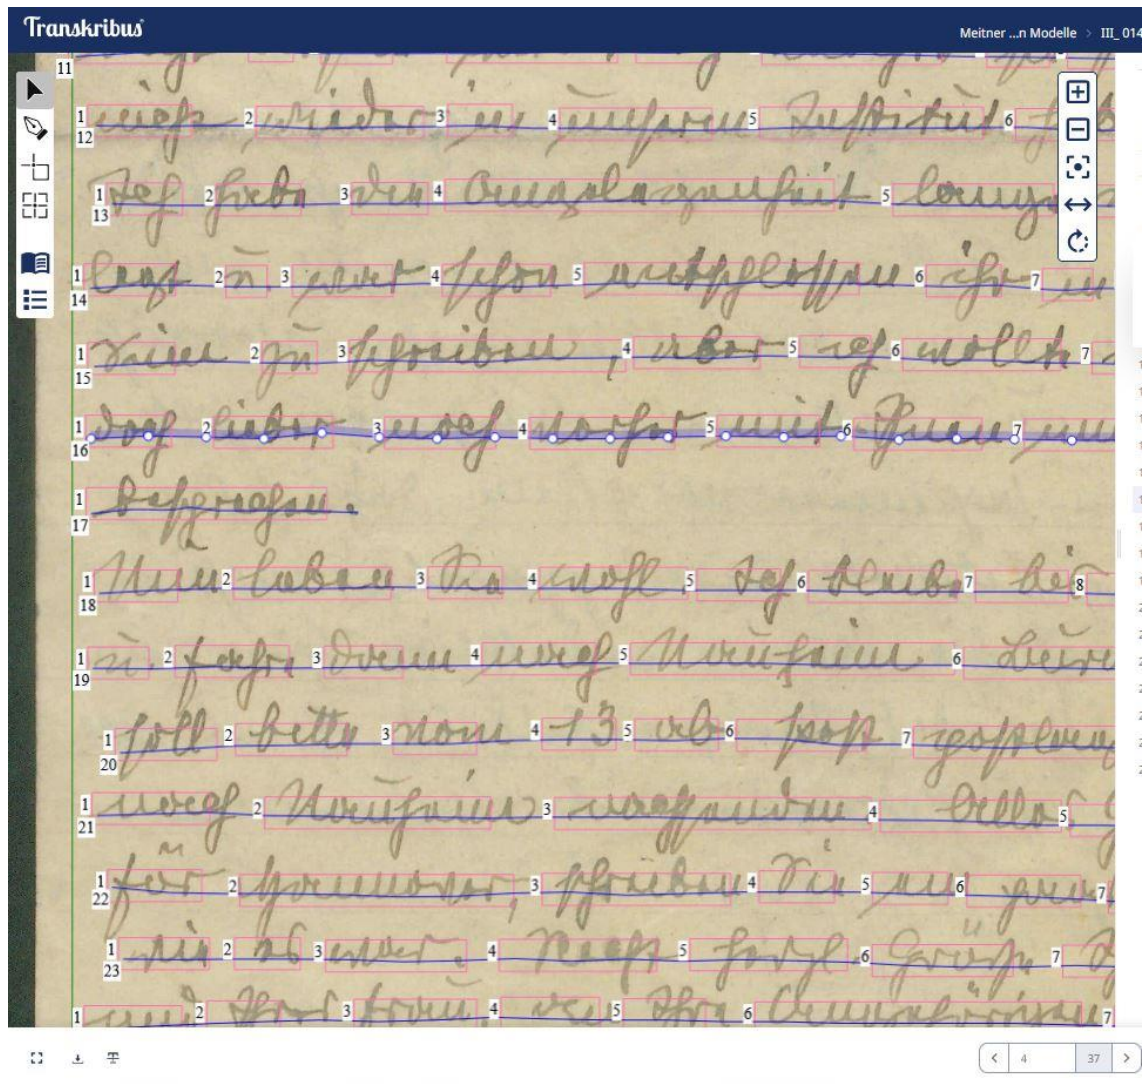 Transkribus
Meitner ...n Modelle > III_ 014
11
12 mich wieder in unserem Institut
13 Ich habe die Angelegenheit
14 legt u. war schon entschlossen ihr
15 Sinn zu schreiben, aber ich wollte
16 doch lieber noch vorher mit Ihnen
17 besprechen.
18 Nun leben Sie wohl. Ich bleibe
19 u. fahre dann nach Mannheim
20 soll bitte vom 13 ab
21 nach Mannheim nachsenden. Alles
22 für Hannover, schreiben Sie
23 wie es war. Recht herzl. Grüße
und Ihrer Frau, den Ihre Angehörigen
4 37